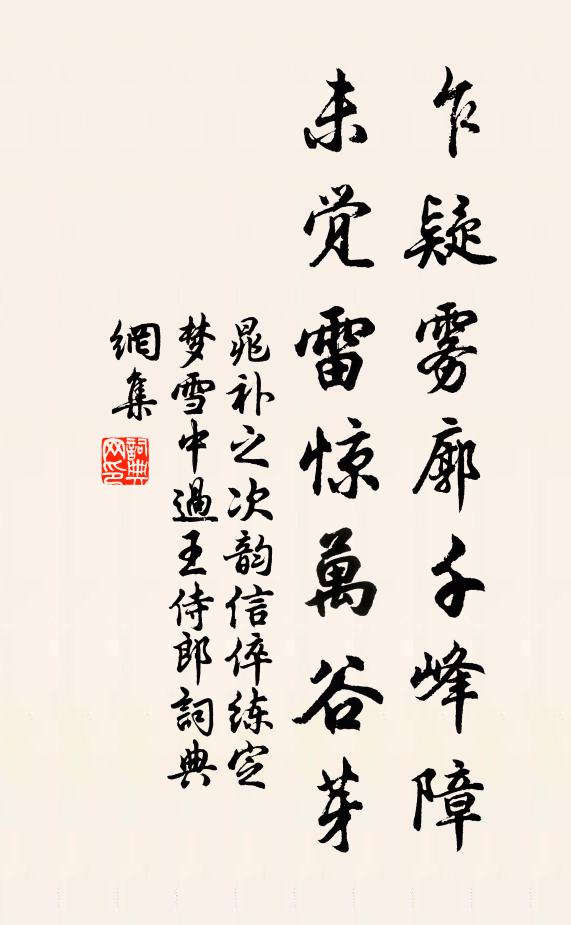 乍疑雾廓千峰障
未觉雷惊萬谷芽
晁补之次韵信倅练定
梦雪中過王侍郎詞典
網集
詞典
网印